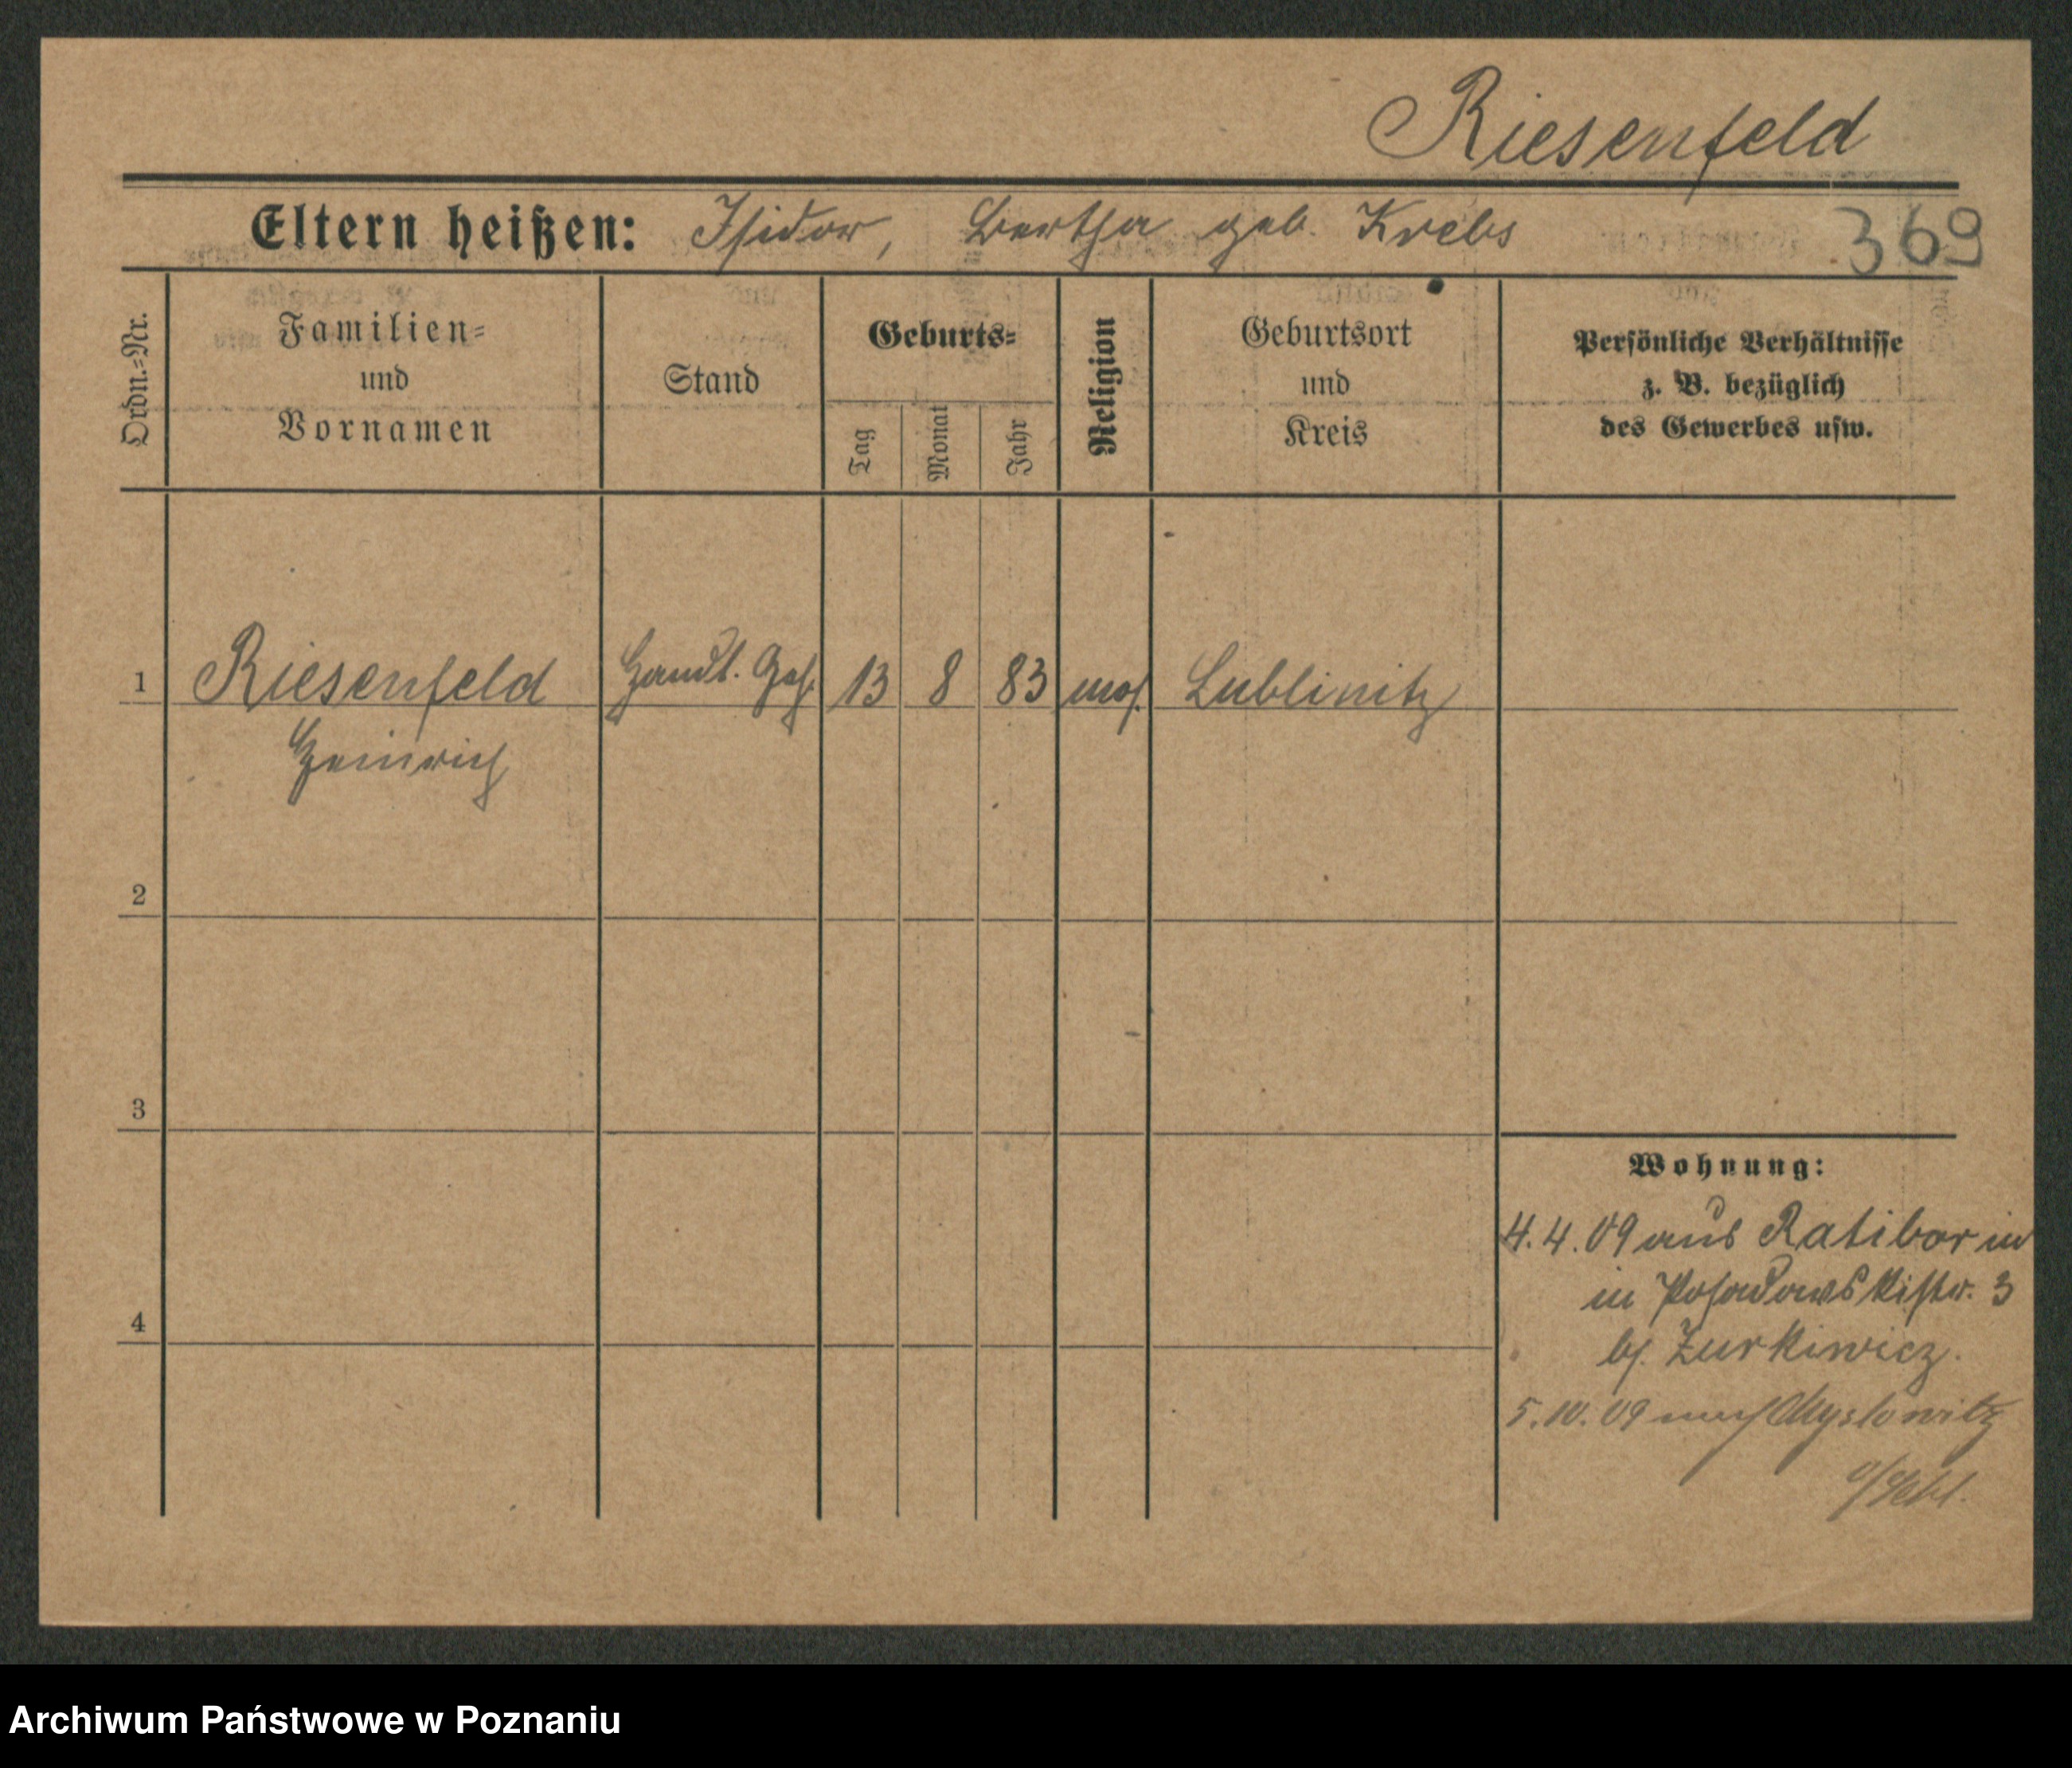 Riesenfeld
Eltern heißen: Isidor, Bertha geb. Krebs
369
Ordn.-Nr.
Familien-
und
Vornamen
Stand
Geburts-
Tag
Monat
Jahr
Religion
Geburtsort
und
Kreis
Persönliche Verhältnisse
z. B. bezüglich
des Gewerbes usw.
1 Riesenfeld Handl. Geh. 13 8 83 mos. Lublinitz
Heinrich
2
3
4
Wohnung:
4.4.09 aus Ratibor in
in Posadowskistr. 3
bf. Zurkiewicz.
5.10.09 nach Myslowitz
Archiwum Państwowe w Poznaniu